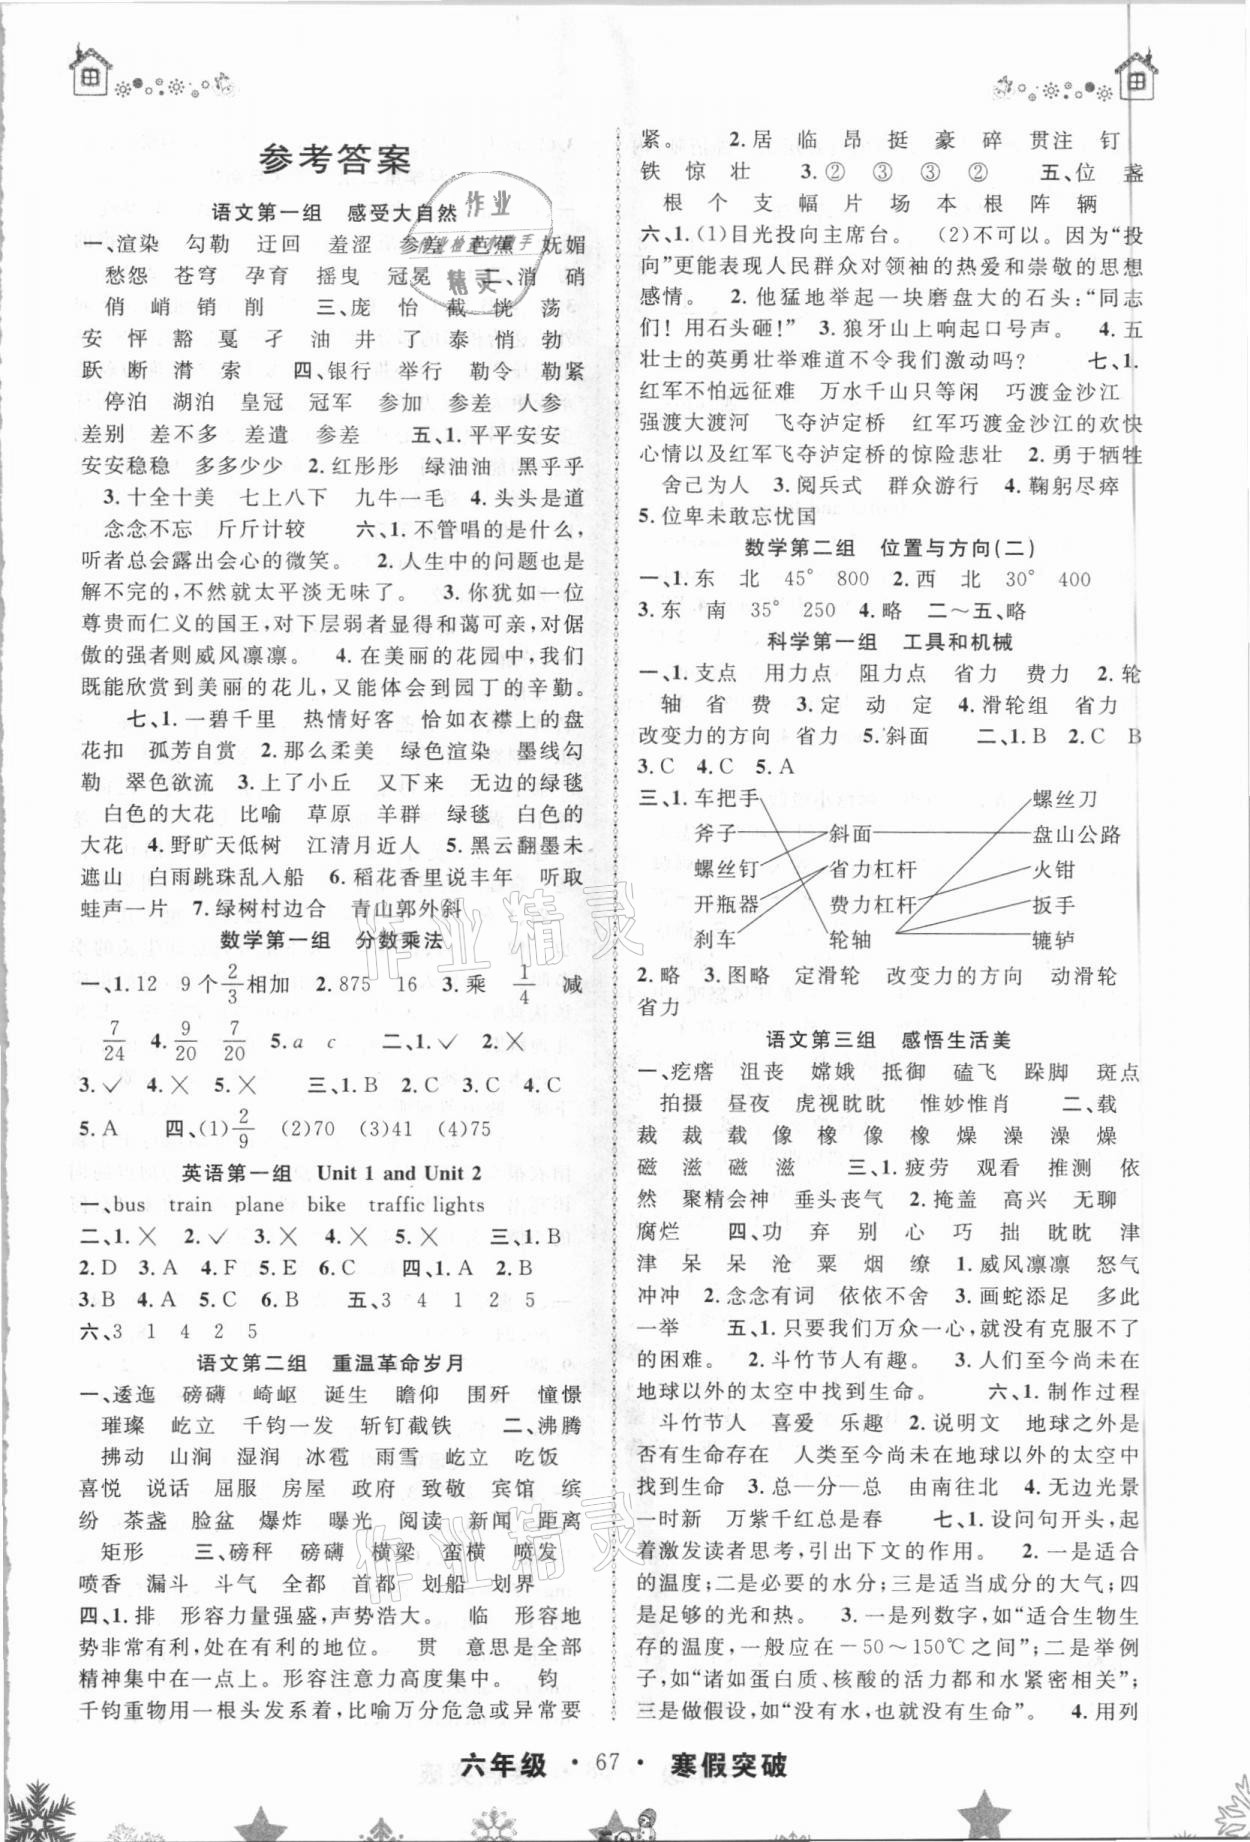 参考答案
语文第一组　感受大自然
一、渲染　勾勒　迂回　羞涩　参差　芭蕉　妩媚
愁怨　苍穹　孕育　摇曳　冠冕　二、消　硝
俏　峭　销　削　三、庞　怡　截　恍　荡
安　怦　豁　戛　孑　油　井　了　泰　悄　勃
跃　断　潸　索　四、银行　举行　勒令　勒紧
停泊　湖泊　皇冠　冠军　参加　参差　人参
差别　差不多　差遣　参差　五、1.平平安安
安安稳稳　多多少少　2.红彤彤　绿油油　黑乎乎
3.十全十美　七上八下　九牛一毛　4.头头是道
念念不忘　斤斤计较　六、1.不管唱的是什么,
听者总会露出会心的微笑。　2.人生中的问题也是
解不完的,不然就太平淡无味了。　3.你犹如一位
尊贵而仁义的国王,对下层弱者和蔼可亲,对倨
傲的强者则威风凛凛。　4.在美丽的花园中,我们
既能欣赏到美丽的花儿,又能体会到园丁的辛勤。
七、1.一碧千里　热情好客　恰如衣襟上的盘
花扣　孤芳自赏　2.那么柔美　绿色渲染　墨线勾
勒　翠色欲流　3.上了小丘　又下来　无边的绿毯
白色的大花　比喻　草原　羊群　绿毯　白色的
大花　4.野旷天低树　江清月近人　5.黑云翻墨未
遮山　白雨跳珠乱入船　6.稻花香里说丰年　听取
蛙声一片　7.绿树村边合　青山郭外斜
数学第一组　分数乘法
一、1.12　9个2/3相加　2.875　16　3.乘　1/4　减
7/24　4.9/20　7/20　5.a　c　二、1.✓　2.×
3.✓　4.×　5.×　三、1.B　2.C　3.C　4.C
5.A　四、(1)2/9　(2)70　(3)41　(4)75
英语第一组　Unit 1 and Unit 2
一、bus　train　plane　bike　traffic lights
二、1.×　2.✓　3.×　4.×　5.×　三、1.B
2.D　3.A　4.F　5.E　6.C　四、1.A　2.B
3.B　4.A　5.C　6.B　五、3　4　1　2　5
六、3　1　4　2　5
语文第二组　重温革命岁月
一、逶迤　磅礴　崎岖　诞生　瞻仰　围歼　憧憬
璀璨　屹立　千钧一发　斩钉截铁　二、沸腾
拂动　山涧　湿润　冰雹　雨雪　屹立　吃饭
喜悦　说话　屈服　房屋　政府　致敬　宾馆　缤
纷　茶盏　脸盆　爆炸　曝光　阅读　新闻　距离
矩形　三、磅秤　磅礴　横梁　蛮横　喷发
喷香　漏斗　斗气　全都　首都　划船　划算
四、1.排　形容力量强盛,声势浩大。　临　形容地
势非常有利,处在有利的地位。　贯　意思是全部
精神集中在一点上。形容注意力高度集中。　钧
千钧重物用一根头发系着,比喻万分危急或异常要
紧。　2.居　临　昂　挺　豪　碎　贯注　钉
铁　惊　壮　3.②　③　③　②　五、位　盏
根　个　支　幅　片　场　本　根　阵　辆
六、1.(1)目光投向主席台。　(2)不可以。因为“投
向”更能表现人民群众对领袖的热爱和崇敬的思想
感情。　2.他猛地举起一块磨盘大的石头:“同志
们!用石头砸!”　3.狼牙山上响起口号声。　4.五
壮士的英勇壮举难道不令我们激动吗?　七、1.
红军不怕远征难　万水千山只等闲　巧渡金沙江
强渡大渡河　飞夺泸定桥　红军巧渡金沙江的欢快
心情以及红军飞夺泸定桥的惊险悲壮　2.勇于牺牲
舍己为人　3.阅兵式　群众游行　4.鞠躬尽瘁
5.位卑未敢忘忧国
数学第二组　位置与方向(二)
一、1.东　北　45°　800　2.西　北　30°　400
3.东　南　35°　250　4.略　二～五、略
科学第一组　工具和机械
一、1.支点　用力点　阻力点　省力　费力　2.轮
轴　省　费　3.定　动　定　4.滑轮组　省力
改变力的方向　省力　5.斜面　二、1.B　2.C　B
3.C　4.C　5.A
三、1.车把手　螺丝刀
斧子　斜面　盘山公路
螺丝钉　省力杠杆　火钳
开瓶器　费力杠杆　扳手
刹车　轮轴　辘轳
2.略　3.图略　定滑轮　改变力的方向　动滑轮
省力
语文第三组　感悟生活美
一、疙瘩　沮丧　嫦娥　抵御　磕飞　跺脚　斑点
拍摄　昼夜　虎视眈眈　惟妙惟肖　二、载
裁　裁　载　像　橡　像　橡　燥　澡　澡　燥
磁　滋　磁　滋　三、1.疲劳　观看　推测　依
然　聚精会神　垂头丧气　2.掩盖　高兴　无聊
腐烂　四、功　弃　别　心　巧　拙　眈眈　津
津　呆　呆　沧　粟　烟　缭　1.威风凛凛　怒气
冲冲　2.念念有词　依依不舍　3.画蛇添足　多此
一举　五、1.只要我们万众一心,就没有克服不了
的困难。　2.斗竹节人有趣。　3.人们至今尚未在
地球以外的太空中找到生命。　六、1.制作过程
斗竹节人　喜爱　乐趣　2.说明文　地球之外是
否有生命存在　人类至今尚未在地球以外的太空中
找到生命　3.总—分—总　由南往北　4.无边光景
一时新　万紫千红总是春　七、1.设问句开头,起
着激发读者思考,引出下文的作用。　2.一是适合
的温度;二是必要的水分;三是适当成分的大气;四
是足够的光和热。　3.一是列数字,如“适合生物生
存的温度,一般应在－50～150℃之间”;二是举例
子,如“诸如蛋白质、核酸的活力都和水紧密相关”;
三是做假设,如“没有水,也就没有生命”。　4.用列
六年级 · 67 · 寒假突破
作业精灵
作业精灵